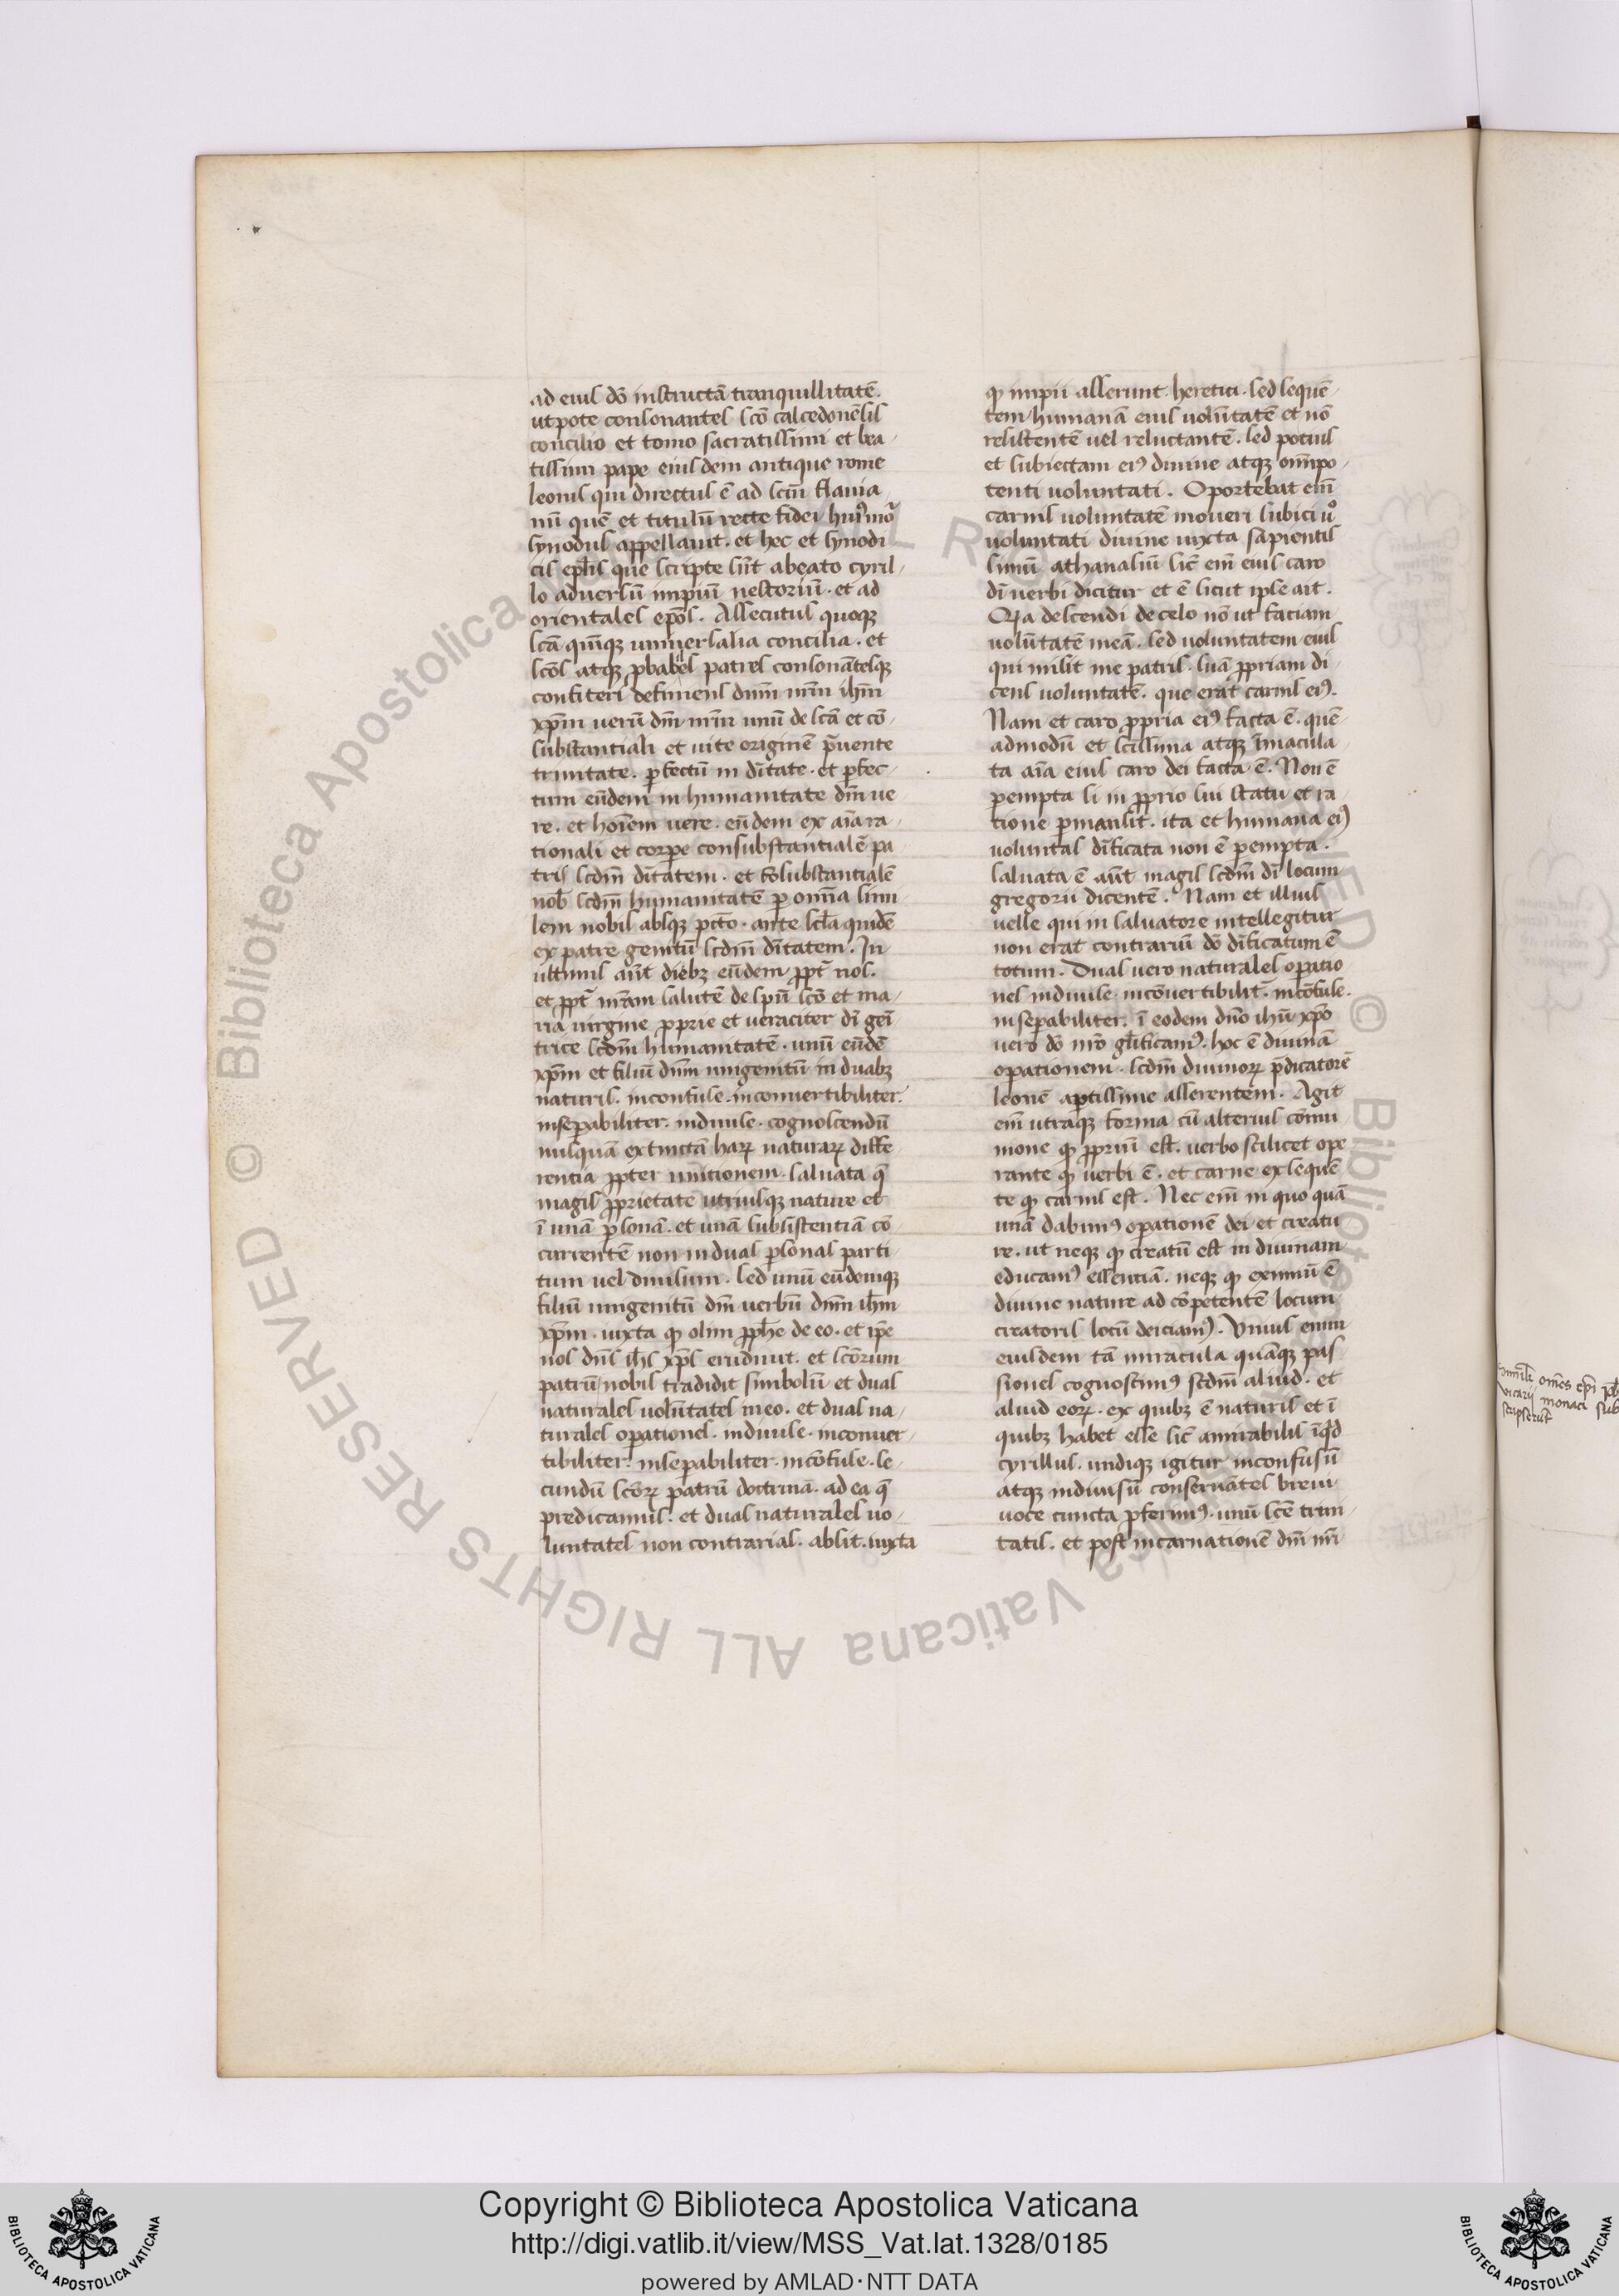 ad eius dō instructā tranquillitatē.
utpote consonantes scō calcedonēsis
concilio et tomo sacratissimi et bea-
tissimi pape eiusdem antique rome
leonis qui directus ē ad scm̄ flauia-
nū quē et titulū recte fidei huiꝰmōi
synodus appellauit. et hec et synodi
cis ep̄lis que scripte sūt abeato cyril-
lo aduersū impiū nestoriū. et ad
orientales ep̄os. Assecutus quoqꝫ
scā quīqꝫ uniuersalia concilia. et
scōs atqꝫ ꝓbabiles patres consonātesqꝫ
confiteri definiens dnm̄ nrm̄ ihm̄
xp̄m uerū dm̄ nrm̄ unū de scā et cō-
substantiali et uite originē p̄uente
trinitate. ꝑfectū in ditate. et ꝑfec-
tum eūdem in humanitate dm̄ ue
re. et hoīem uere. eūdem ex aīa ra-
tionali et corꝑe consubstantialē pa
tris scdm̄ ditatem. et ꝯsubstantialē
nob̄ scdm̄ humanitatē ꝑ omīa simi
lem nobis absqꝫ pctō. ante scl̄a quidē
ex patre genitū scdm̄ ditatem. In
ultimis aūt diebꝫ eūdem ꝓpt̄ nos.
et ꝓpt̄ nr̄am salutē de spū scō et ma-
ria uirgine ꝓprie et ueraciter dī geī
trice scdm̄ humanitatē. unū eūdē
xp̄m et filiū dnm̄ unigenitū in duabꝫ
naturis. inconfuse. inconuertibiliter.
insepabiliter. indiuise. cognoscendū
nusquā extinctā harꝝ naturarꝝ diffe
rentia ꝓpter unitionem. saluata qꝫ
magis ꝓprietate utriusqꝫ nature et
ī unā ꝑsonā. et unā subsistentiā cō
currentē non in duas ꝑsonas parti-
tum uel diuisum. sed unū eūdemqꝫ
filiū unigenitū dm̄ uerbū dnm̄ ihm̄
xp̄m. iuxta qđ olim ꝓphē de eo. et ip̄e
nos dn̄s ih̄s xp̄s erudiuit. et scōrum
patrū nobis tradidit simbolū et duas
naturales uolūtates in eo. et duas na-
turales oꝑationes. indiuise. inconuer-
tibiliter. inseꝑabiliter. incōfuse. se-
cundū scōrꝝ patrū doctrinā. ad ea qꝫ
predicamus. et duas naturales uo-
luntates non contrarias. absit. iuxta
qđ impii asserunt heretici. sed sequē-
tem humanā eius uolūtatē et nō
resistentē uel reluctantē. sed potius
et subiectam eiꝰ diuine atqꝫ omīpo-
tenti uoluntati. Oportebat em̄
carnis uoluntatē moueri subici u̇o
uoluntati diuine iuxta sapientis
simū athanasiū sic̄ em̄ eius caro
dī uerbi dicitur et ē sicut ipse ait.
Q̄a descendi de celo nō ut faciam
uolūtatē meā. sed uoluntatem eius
qui misit me patris. suā ꝓpriam di-
cens uoluntatē. que erat carnis eiꝰ.
Nam et caro ꝓpria eiꝰ facta ē. quē-
admodū et sctīssima atqꝫ īmacula-
ta aīa eius caro dei facta ē. Non ē
ꝑempta si in ꝓprio sui statu et ra-
tione ꝑmansit. ita et humana eiꝰ
uoluntas dīficata non ē ꝑempta.
saluata ē aūt magis scdm̄ dī locum
gregorii dicentē. Nam et illius
uelle qui in saluatore intellegitur
non erat contrariū dō dīficatum ē
totum. Duas uero naturales oꝑatio
nes indiuise. incōuertibilit̄. incōfuse.
inseꝑabiliter. ī eodem dn̄o ihū xp̄o
uero dō nrō gl̄ificamꝰ. hoc ē diuinā
oꝑationem. scdm̄ diuinorꝝ p̄dicatorē
leonē aꝑtissime asserentem. Agit
em̄ utraqꝫ forma cū alterius cōmu
nione qđ ꝓpriū est. uerbo scilicet ope
rante qđ uerbi ē. et carne exsequē
te qđ carnis est. Nec em̄ in quo quā
unā dabimꝰ oꝑationē dei et creatu
re. ut neqꝫ qđ creatū est in diuinam
educamꝰ essentiā. neqꝫ qđ eximiū ē
diuine nature ad cōpetentē locum
creatoris locū deiciamꝰ. Unius enim
eiusdem tā miracula quāqꝫ pas-
siones cognoscimꝰ scdm̄ aliud. et
aliud eorꝝ. ex quibꝫ ē naturis et ī
quibꝫ habet esse sic̄ amirabilis īqđ
cyrillus. undiqꝫ igitur inconfusū
atqꝫ indiuisū conseruātes breui
uoce cuncta ꝓferimꝰ. unū scē trini-
tatis. et post incarnationē dnī nrī
omēs epī
uicarii monaci sub
scripserūt
© Biblioteca Apostolica Vaticana ALL RIGHTS RESERVED
Copyright © Biblioteca Apostolica Vaticana
http://digi.vatlib.it/view/MSS_Vat.lat.1328/0185
powered by AMLAD·NTT DATA
BIBLIOTECA APOSTOLICA VATICANA
BIBLIOTECA APOSTOLICA VATICANA